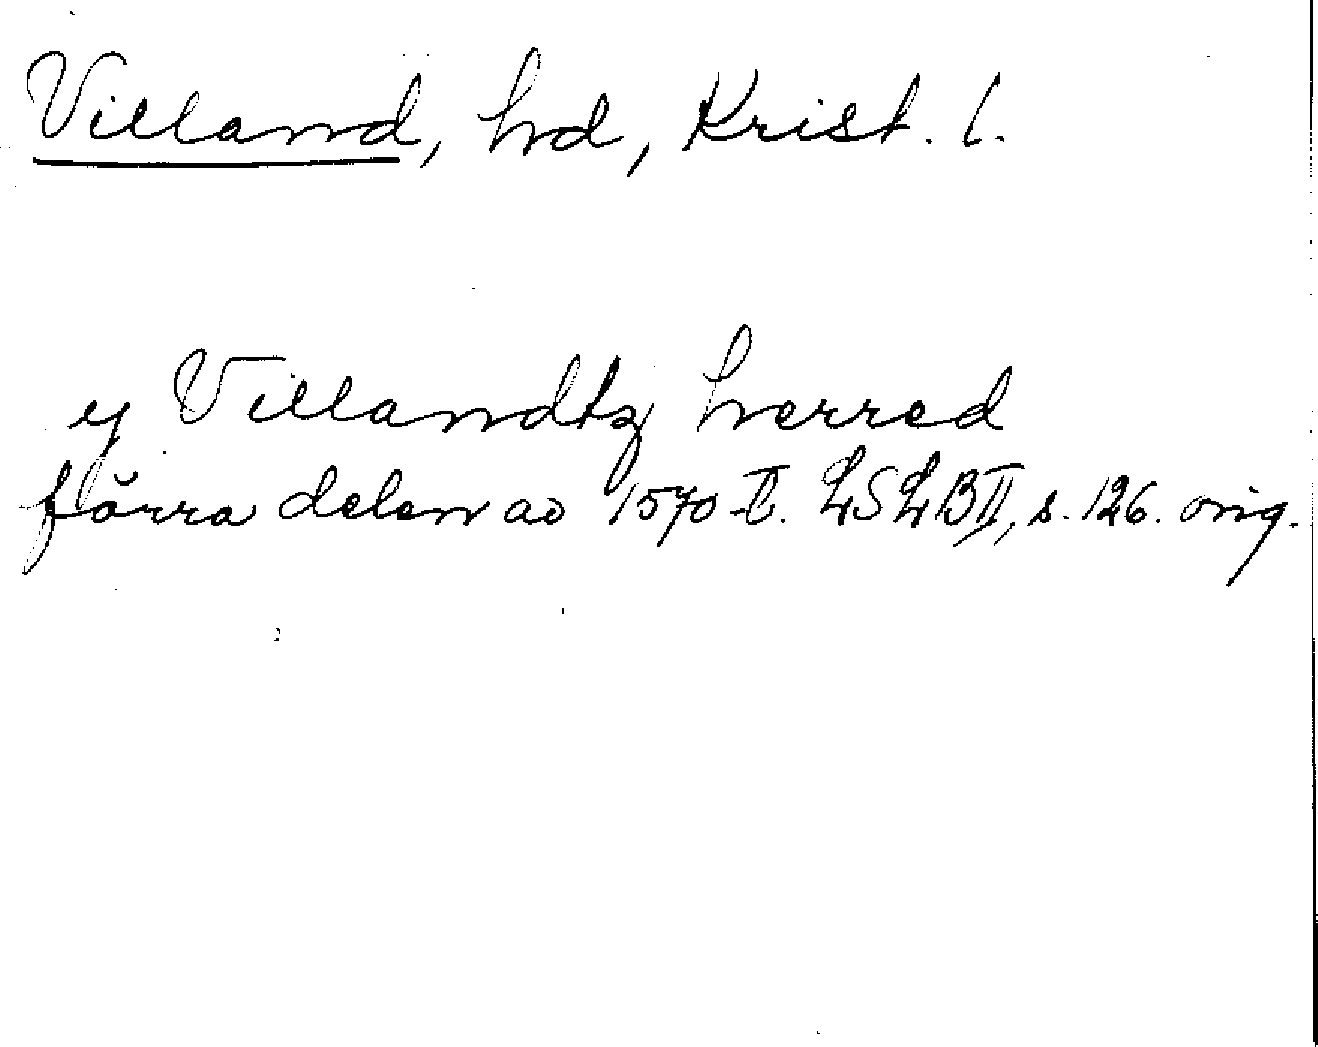 Villand, hd, Krist. l.
y Villandtz herred
förra delen av 1570-t. LSLB II, s. 126. orig.